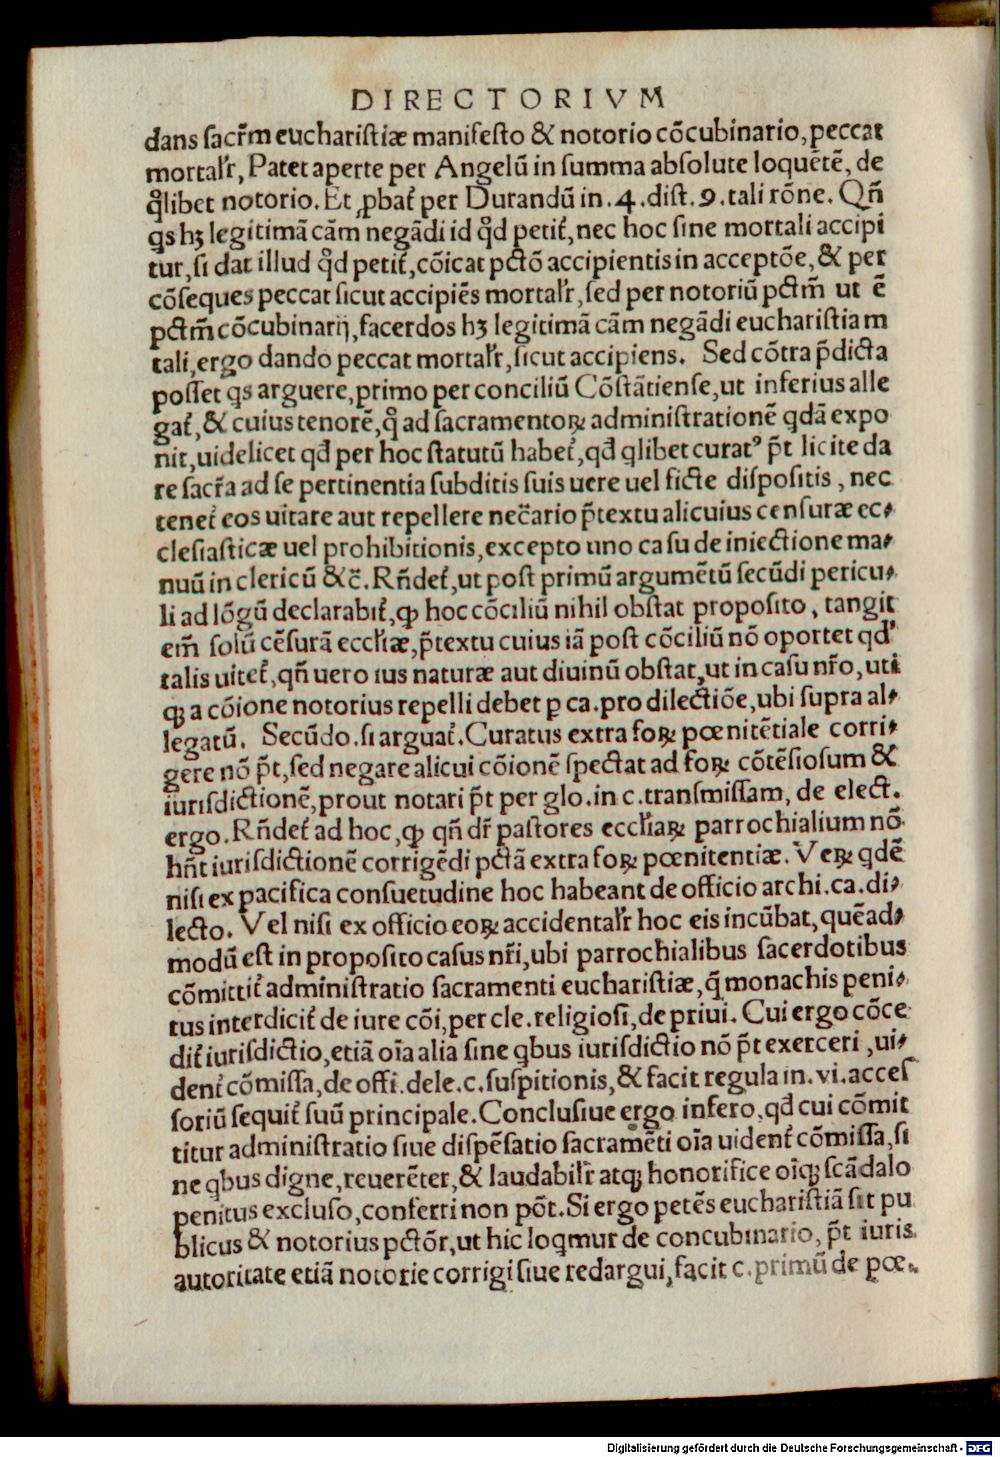 DIRECTORIVM
dans sacr̃m eucharistiæ manifesto & notorio cõcubinario, peccat
mortalr̃, Patet aperte per Angelũ in summa absolute loquẽtẽ, de
q̃libet notorio. Et ꝓbat᷑ per Durandũ in .4. dist. 9. tali rõne. Qñ
qs hꝫ legitimã cãm negãdi id q̃d petit᷑, nec hoc sine mortali accipi
tur, si dat illud q̃d petit᷑, cõicat pctõ accipientis in acceptõe, & per
cõseques peccat sicut accipiẽs mortalr̃, sed per notoriũ pctm̃ ut ẽ
pctm̃ cõcubinarij, facerdos hꝫ legitimã cãm negãdi euchariſtiam
tali, ergo dando peccat mortalr̃, sicut accipiens. Sed cõtra p̃dicta
posset qs arguere, primo per conciliũ Cõstãtiense, ut inferius alle
gat᷑, & cuius tenorẽ, q̃ ad sacramentoꝝ administrationẽ qdã expo
nit, uidelicet qđ per hoc statutũ habet᷑, qđ qlibet curatꝰ p̃t licite da
re sacr̃a ad se pertinentia subditis suis uere uel ficte dispositis, nec
tenet᷑ eos uitare aut repellere nec̃ario p̃textu alicuius censuræ ec-
clesiasticæ uel prohibitionis, excepto uno casu de iniectione ma-
nuũ in clericũ &c̃. Rñdet᷑, ut post primũ argumẽtũ secũdi pericu-
li ad lõgũ declarabit᷑, ꝙ hoc cõciliũ nihil obstat proposito, tangit
em̃ solũ cẽsurã eccl̃iæ, p̃textu cuius iã post cõciliũ nõ oportet qđ
talis uitet᷑, qñ uero ius naturæ aut diuinũ obstat, ut in casu nr̃o, uti
qꝫ a cõione notorius repelli debet p ca. pro dilectiõe, ubi supra al-
legatũ. Secũdo. si arguat᷑. Curatus extra foꝝ pœnitẽtiale corri-
gere nõ p̃t, sed negare alicui cõionẽ spectat ad foꝝ cõtẽsiosum &
iurisdictionẽ, prout notari p̃t per glo. in c. transmissam, de elect.
ergo. Rñdet᷑ ad hoc, ꝙ qñ dr̃ pastores eccl̃iaꝝ parrochialium nõ
hñt iurisdictionẽ corrigẽdi pctã extra foꝝ pœnitentiæ. Veꝝ qdẽ
nisi ex pacifica consuetudine hoc habeant de officio archi. ca. di-
lecto. Vel nisi ex officio eoꝝ accidentalr̃ hoc eis incũbat, quẽad-
modũ est in proposito casus nr̃i, ubi parrochialibus sacerdotibus
cõmittit᷑ administratio sacramenti eucharistiæ, q̃ monachis peni-
tus interdicit᷑ de iure cõi, per cle. religiosi, de priui. Cui ergo cõce
dit᷑ iurisdictio, etiã oĩa alia sine qbus iurisdictio nõ p̃t exerceri, ui-
dent᷑ cõmissa, de offi. dele. c. suspitionis, & facit regula in .vi. acces
soriũ sequit᷑ suũ principale. Conclusiue ergo infero, qđ cui cõmit
titur administratio siue dispẽsatio sacramẽti oĩa uident᷑ cõmissa, si
ne qbus digne, reuerẽter, & laudabilr̃ atqꝫ honorifice oĩqꝫ scãdalo
penitus excluso, conferri non põt. Si ergo petẽs eucharistiã sit pu
blicus & notorius pctõr, ut hic loqmur de concubinario, p̃t iuris
autoritate etiã notorie corrigi siue redargui, facit c. primũ de pœ-
Digitalisierung gefördert durch die Deutsche Forschungsgemeinschaft - DFG